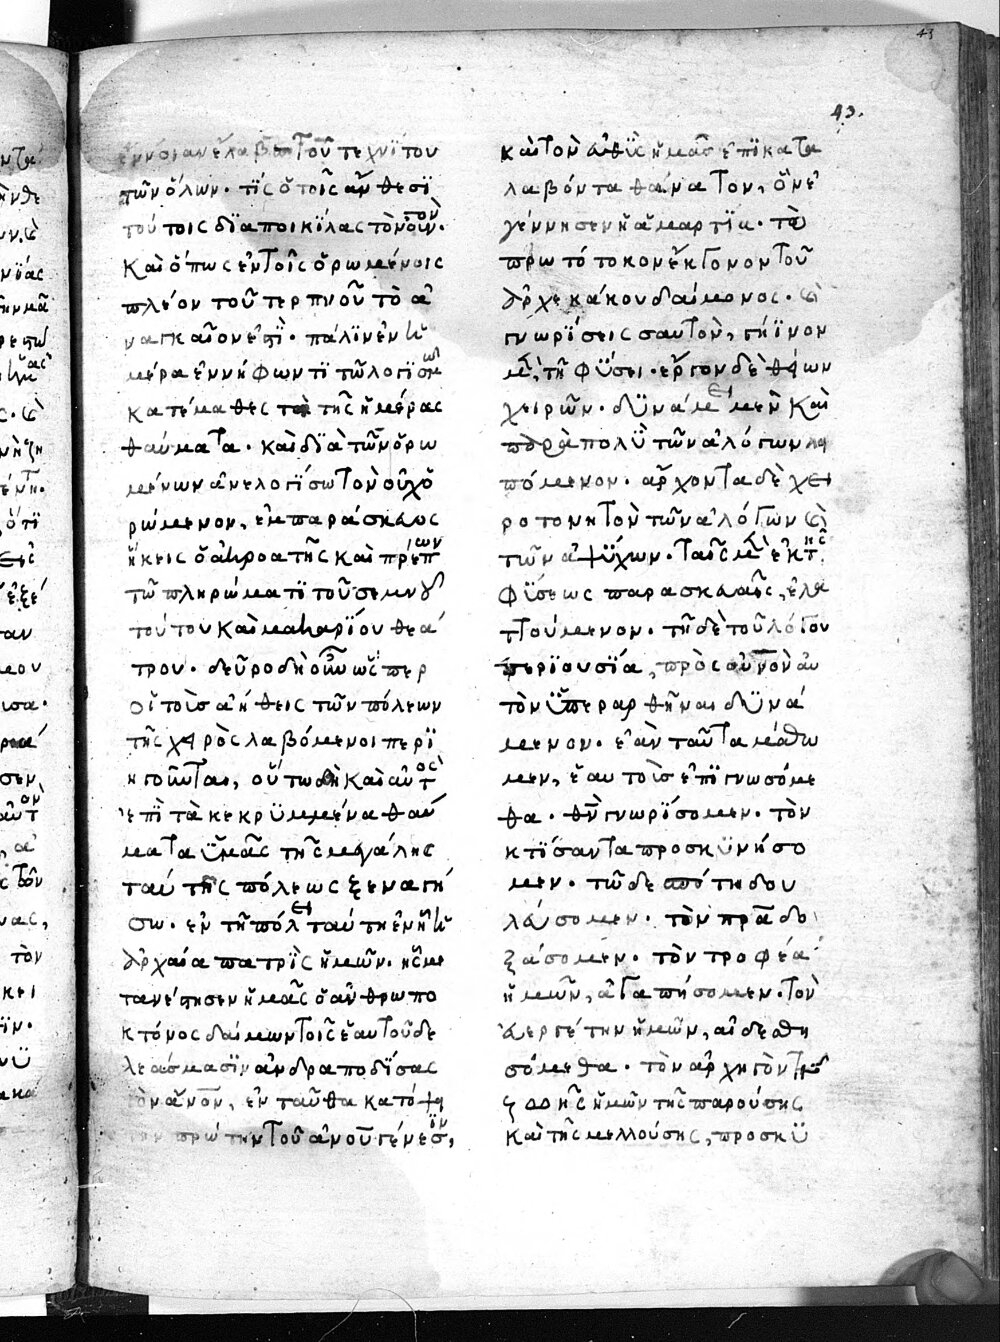 43
43.
ἔννοιαν ἔλαβες τοῦ τεχνίτου
τῶν ὅλων. τίς ὁ τοῖς ἄνθεσι
τούτοις διαποικίλας τὸν οὐνον.
Καὶ ὅπως ἐν τοῖς ὁρωμένοις
πλέον τοῦ τερπνοῦ τὸ ἀ
ναγκαῖον ἐπὶ. πάλιν ἐν ἡ
μέρα ἐννήφωντι τῶ λογισμῶ
κατέμαθες τὰ τῆς ἡμέρας
θαύματα. καὶ διὰ τῶν ὁρω
μένων ἀνελογίσω τὸν οὐχ ὁ
ρώμενον, ἐμπαράσκευος
ἥκεις ὁ ἀκροατῆς καὶ πρέπων
τῶ πληρώματι τοῦ σεμνοῦ
τούτου καὶ μακαρίου θεά
τρου. δεῦρο δὴ οὖν ὥσπερ
οἱ τοὶς ἀήθεις τῶν πόλεων
τῆς χειρὸς λαβόμενοι περϊ
ηγοῦνται, οὕτω δὴ Καὶ αὐτὸς
ἐπὶ τὰ κεκρυμμένα θαύ
ματα ὑμᾶς τῆς μεγάλης
ταύτης πόλεως ξεναγή
σω. ἐν τῆ πόλει ταύτη ἐν ἧ ἡ
ἀρχαία πατρὶς ἡμῶν. ἧς με
τανέστησεν ἡμᾶς ὁ ἀνθρωπο
κτόνος δαίμων τοῖς ἑαυτοῦ δε
λεάσμασιν ἀνδραποδίσας
τὸν ἄνον, ἐνταῦθα κατόψη
τὴν πρώτην τοῦ ἀνου γένεσιν,
καὶ τὸν εὐθὺς ἡμᾶς ἐπικατα
λαβόντα θάνατον, ὃν ἐ
γέννησεν ἡ ἁμαρτία. τὸ
πρωτότοκον ἔκγονον τοῦ
ἀρχεκάκου δαίμονος. καὶ
γνωρίσεις σαυτὸν, γήϊνον
μὲν τῆ φύσει. ἔργον δὲ θείων
χειρῶν. δυνάμει μὲν Καὶ
παρὰ πολὺ τῶν ἀλόγων λει
πόμενον. ἄρχοντα δὲ χει
ροτονητὸν τῶν ἀλόγων καὶ
τῶν ἀψύχων. ταῖς μὲν ἐκ τῆς
φύσεως παρασκευαῖς, ἐλα
ττούμενον. τῆ δὲ τοῦ λόγου
περιουσία, πρὸς οὐνον αὐ
τὸν ὑπεραρθῆναι δυνά
μενον. ἐὰν ταῦτα μάθω
μεν, ἑαυτοὶς ἐπιγνωσόμε
θα. θν γνωρίσομεν. τὸν
κτίσαντα προσκυνήσο
μεν. τῶ δεσπότη δου
λεύσομεν. τὸν πρα δο
ξάσομεν. τὸν τροφέα
ἡμῶν, ἀγαπήσομεν. τὸν
εὐεργέτην ἡμῶν, αἰδεσθη
σόμεθα. τὸν ἀρχηγὸν τῆς
ζωῆς ἡμῶν τῆς παρούσης
Καὶ τῆς μελλούσης, προσκυ